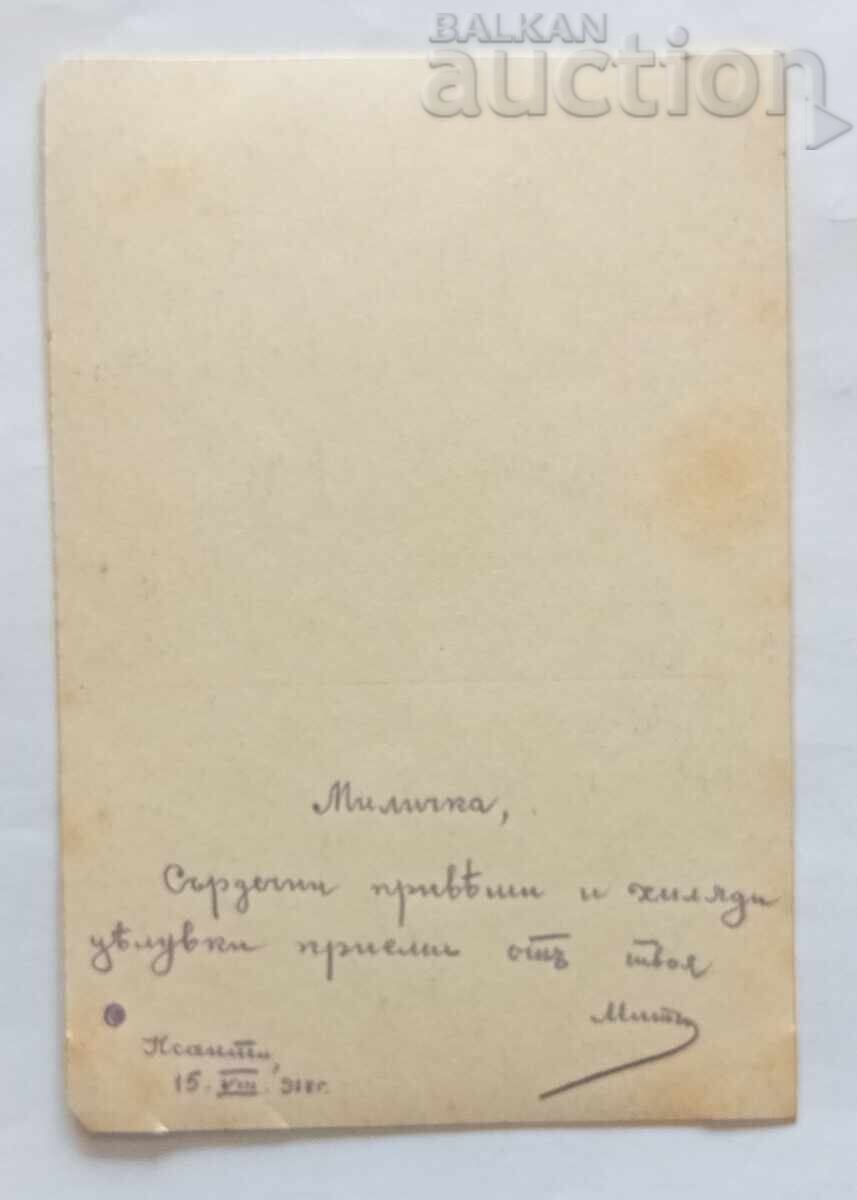 BALKAN
auction
Миличка,
Сърдечни привѣти и хиляди
цѣлувки приеми отъ твоя
Ксанти,
15. VIII.